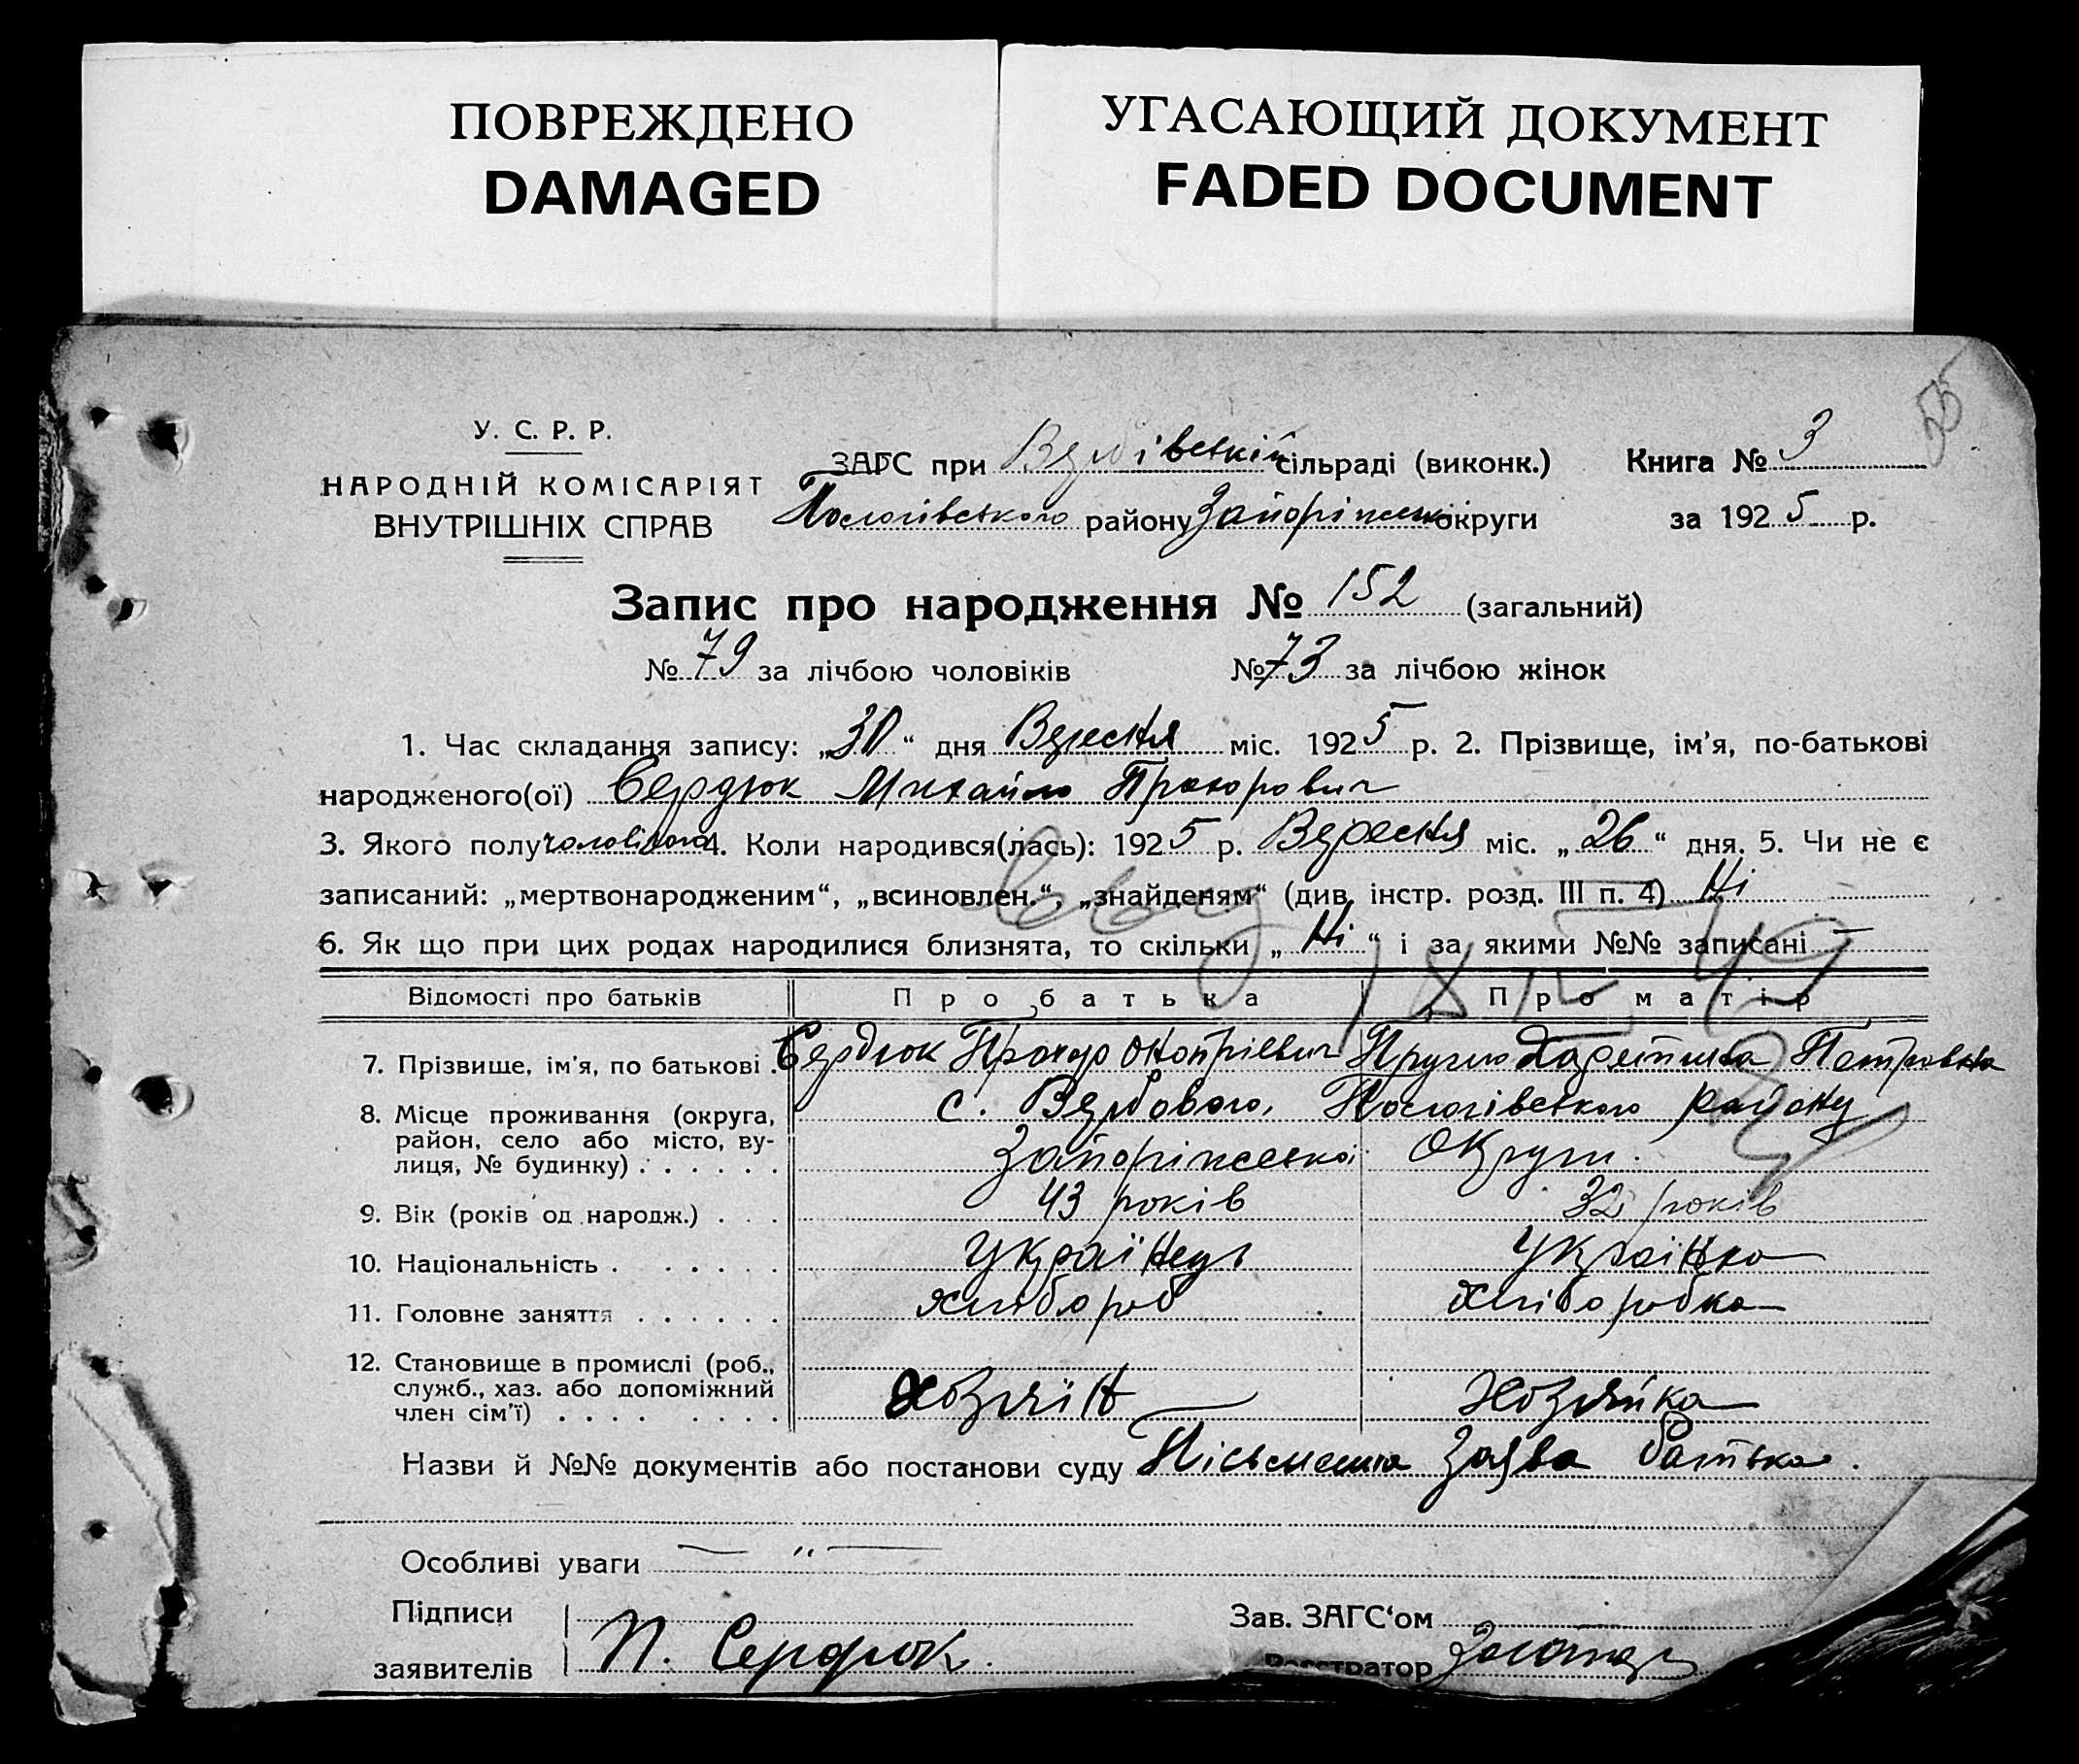 ПОВРЕЖДЕНО
DAMAGED
УГАСАЮЩИЙ ДОКУМЕНТ
FADED DOCUMENT
55
У. С. Р. Р.
НАРОДНІЙ КОМІСАРІЯТ
ВНУТРІШНІХ СПРАВ
ЗАГС при Вербівській сільраді (виконк.) Книга № 3
Пологівського району Запоріжської округи за 1925 р.
Запис про народження № 152 (загальний)
№ 79 за лічбою чоловіків № 73 за лічбою жінок
1. Час складання запису: „30“ дня Вересня міс. 1925 р. 2. Прізвище, ім’я, по-батькові
народженого(ої) Сердюк Михайло Прохорович
3. Якого полу чоловічого 4. Коли народився(лась): 1925 р. Вересня міс. „26“ дня. 5. Чи не є
записаний: „мертвонародженим“, „всиновлен.“, „знайденям“ (див. інстр. розд. III п. 4) Ні
6. Як що при цих родах народилися близнята, то скільки „Ні“ і за якими №№ записані —
Відомості про батьків Про батька Про матір
7. Прізвище, ім’я, по батькові . Сердюк Прохор Онопрієвич Петровна
8. Місце проживання (округа, район, село або місто, вулиця, № будинку) . . . . . . с. Вербового, Пологівського району
Запоріжської Округи.
9. Вік (років од народж.) . . . 43 років 32 років
10. Національність . . . . . . Українець Українка
11. Головне заняття . . . . . . Хлібороб Хліборобка
12. Становище в промислі (роб., служб., хаз. або допоміжний член сім’ї) . . . . . . . . Хозяїн Хозяйка
Назви й №№ документів або постанови суду Пісьменна Заява батька.
Особливі уваги — „ —
Підписи
заявителів П. Сердюк.
Зав. ЗАГС‘ом
Реєстратор